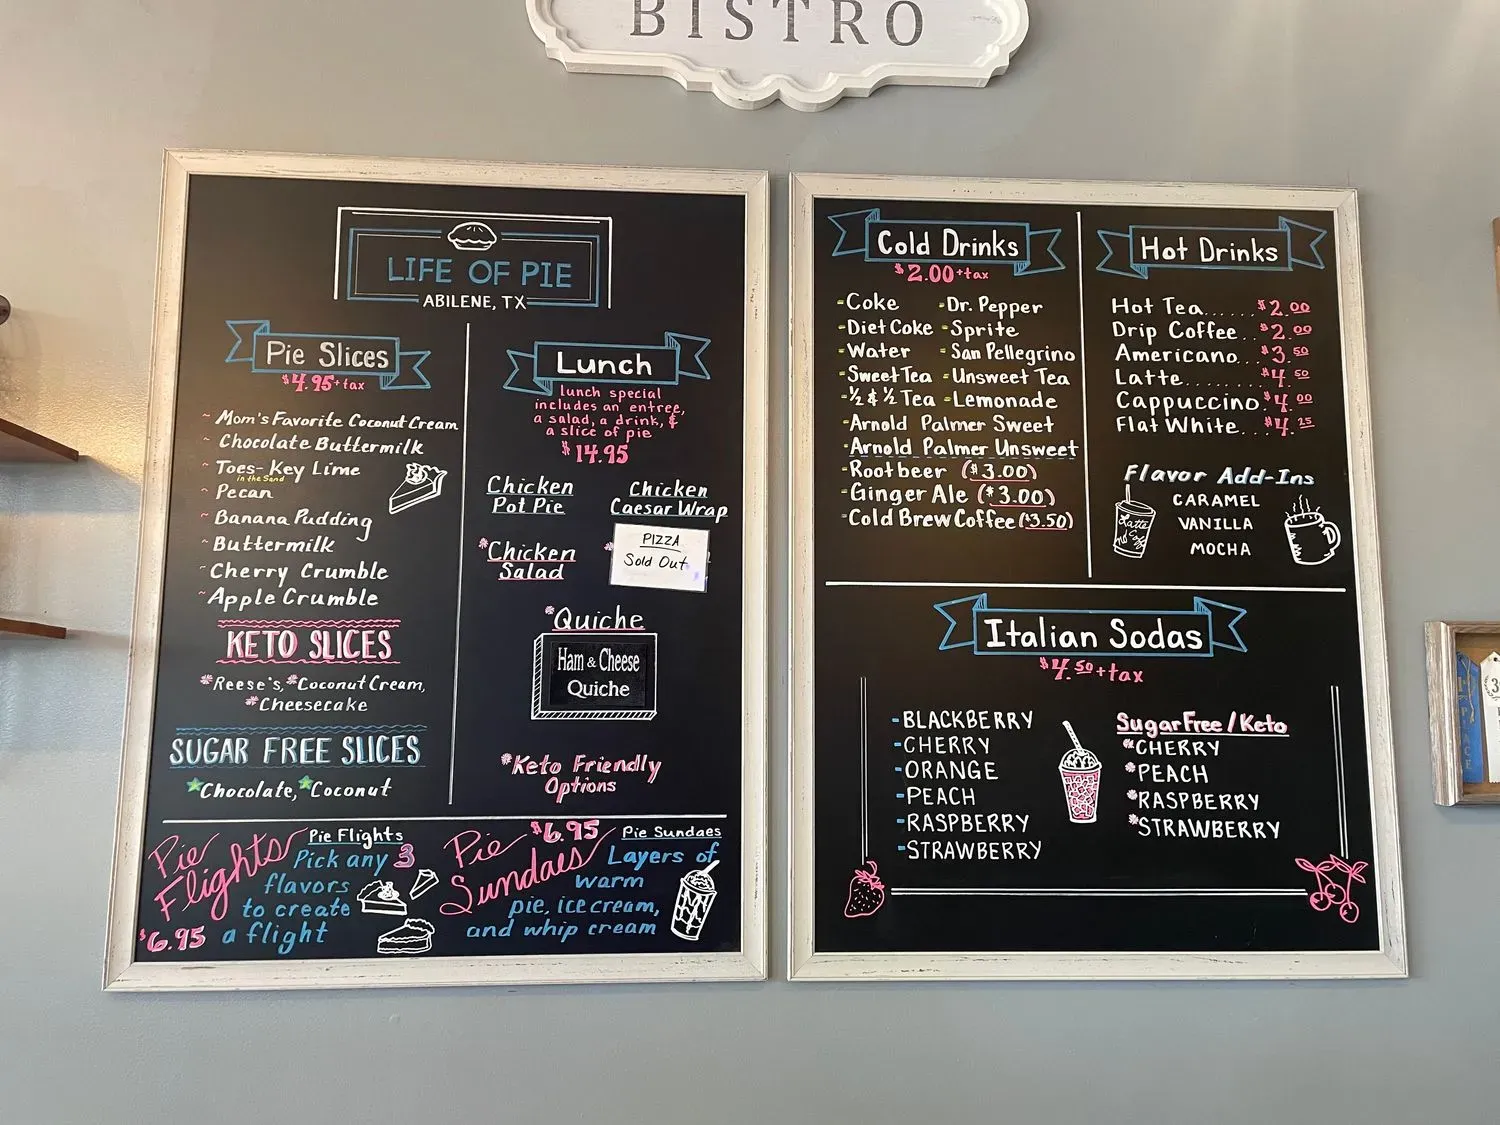 BISTRO
LIFE OF PIE
ABILENE, TX
Pie Slices
$4.95+tax
~ Mom's Favorite Coconut Cream
~ Chocolate Buttermilk
~ Toes- Key Lime
in the Sand
~ Pecan
~ Banana Pudding
~ Buttermilk
~ Cherry Crumble
~ Apple Crumble
KETO SLICES
*Reese's, *Coconut Cream,
*Cheesecake
SUGAR FREE SLICES
*Chocolate, *Coconut
Lunch
lunch special
includes an entree,
a salad, a drink, &
a slice of pie
$14.95
Chicken
Pot Pie
Chicken
Caesar Wrap
*Chicken
Salad
PIZZA
Sold Out
*Quiche
Ham & Cheese
Quiche
*Keto Friendly
Options
Pie
Flights
$6.95
Pie Flights
Pick any 3
flavors
to create
a flight
Pie
Sundaes
$6.95
Pie Sundaes
Layers of
warm
pie, ice cream,
and whip cream
Cold Drinks
$2.00+tax
-Coke -Dr. Pepper
-Diet Coke -Sprite
-Water -San Pellegrino
-Sweet Tea -Unsweet Tea
-½ & ½ Tea -Lemonade
-Arnold Palmer Sweet
-Arnold Palmer Unsweet
-Rootbeer ($3.00)
-Ginger Ale ($3.00)
-Cold Brew Coffee ($3.50)
Hot Drinks
Hot Tea...... $2.00
Drip Coffee.. $2.00
Americano... $3.50
Latte........ $4.50
Cappuccino. $4.00
Flat White... $4.25
Flavor Add-Ins
CARAMEL
VANILLA
MOCHA
Italian Sodas
$4.50+tax
-BLACKBERRY
-CHERRY
-ORANGE
-PEACH
-RASPBERRY
-STRAWBERRY
Sugar Free/Keto
*CHERRY
*PEACH
*RASPBERRY
*STRAWBERRY